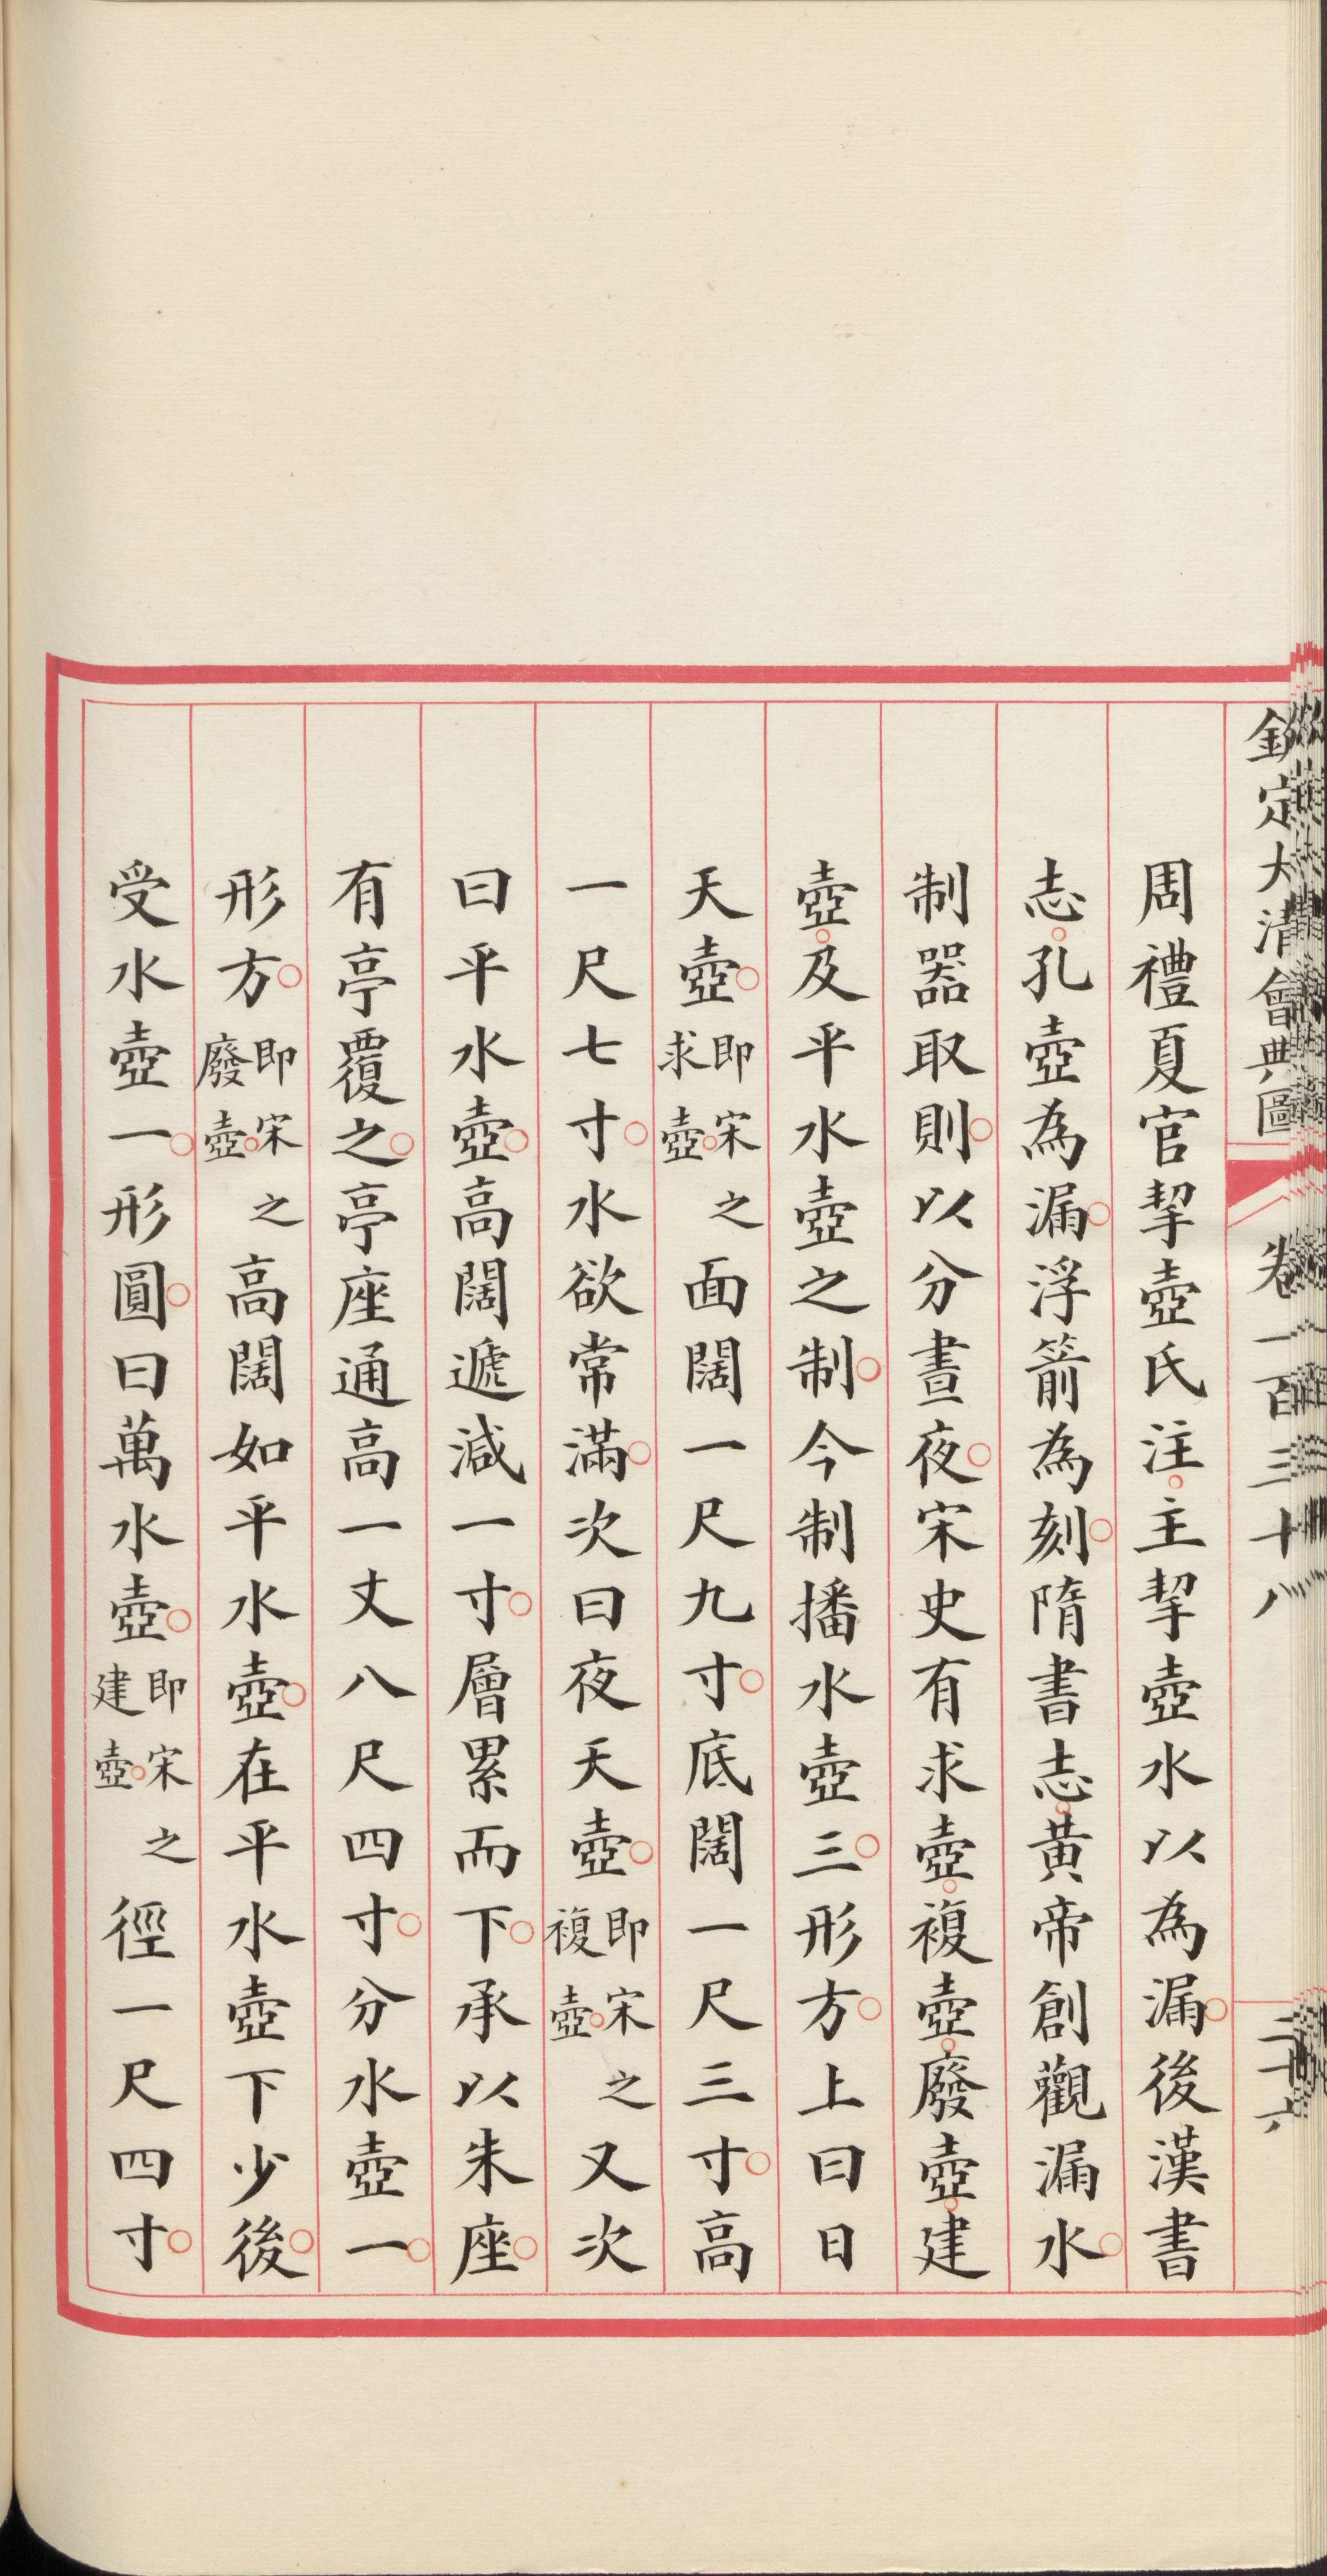 欽定大清會典圖 卷一百三十八 二十六
周禮夏官挈壺氏注主挈壺水以為漏後漢書
志孔壺為漏浮箭為刻隋書志黃帝創觀漏水
制器取則以分晝夜宋史有求壺複壺廢壺建
壺及平水壺之制今制播水壺三形方上曰日
天壺即宋之求壺面闊一尺九寸底闊一尺三寸高
一尺七寸水欲常滿次曰夜天壺即宋之複壺又次
曰平水壺高闊遞減一寸層累而下承以朱座
有亭覆之亭座通高一丈八尺四寸分水壺一
形方即宋之廢壺高闊如平水壺在平水壺下少後
受水壺一形圓曰萬水壺即宋之建壺徑一尺四寸